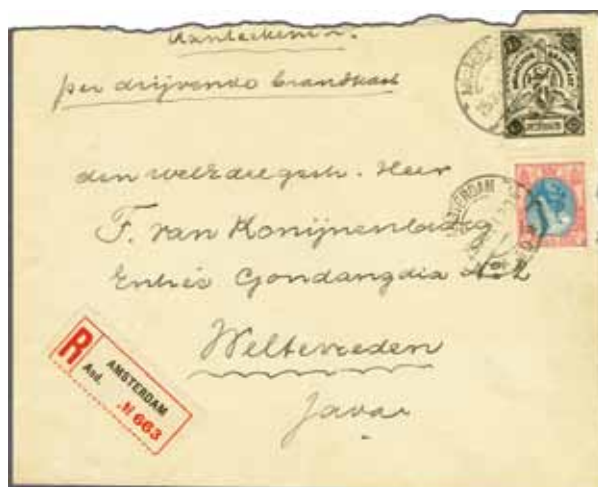 Aanteekenen.
per drijvende brandkast
den weledelgestr. Heer
F. van Konijnenburg
Entrée Gondangdia No 2
Weltevreden
Java
R
AMSTERDAM
Asd.
N 663
AMSTERDAM